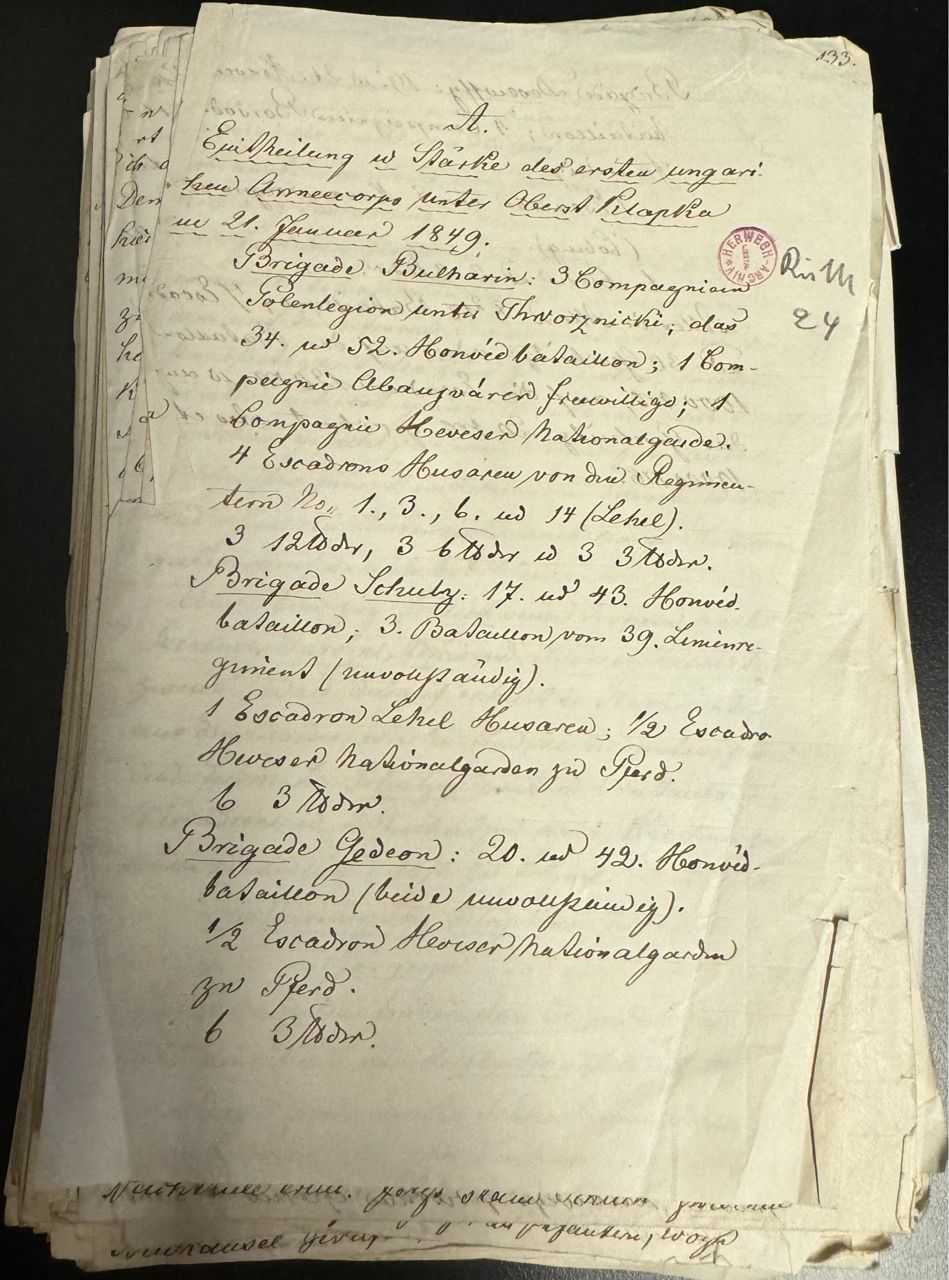 133.
A.
Eintheilung u Stärke des ersten ungari-
schen Armeecorps unter Oberst Klapka
im 21. Januar 1849.
HERWEGH-ARCHIV
Ruth
24
Brigade Bulharin: 3 Compagnieen
Polenlegion unter Thworznicki; das
34. ud 52. Honvédbataillon; 1 Com-
pagnie Abaujvárer freiwillige; 1
Compagnie Heveser Nationalgarde.
4 Escadrons Husaren von den Regimen-
tern No. 1., 3., 6. ud 14 (Lehel).
3 12℔der, 3 6℔der u 3 3℔der.
Brigade Schulz: 17. ud 43. Honvéd-
bataillon; 3. Bataillon vom 39. Linienre-
giment (unvollständig).
1 Escadron Lehel Husaren; 1/2 Escadro
Heveser Nationalgarden zu Pferd.
6 3℔der.
Brigade Gedeon: 20. ud 42. Honvéd-
bataillon (beide unvollständig).
1/2 Escadron Heveser Nationalgarden
zu Pferd.
6 3℔der.